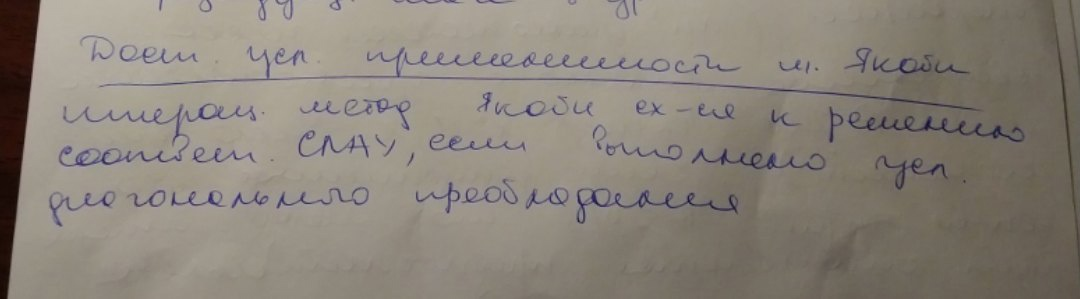 Дост. усл. применимости м. Якоби
итерац. метод Якоби сх-ся к решению
соответ. СЛАУ, если выполнено усл.
диагонального преобладания